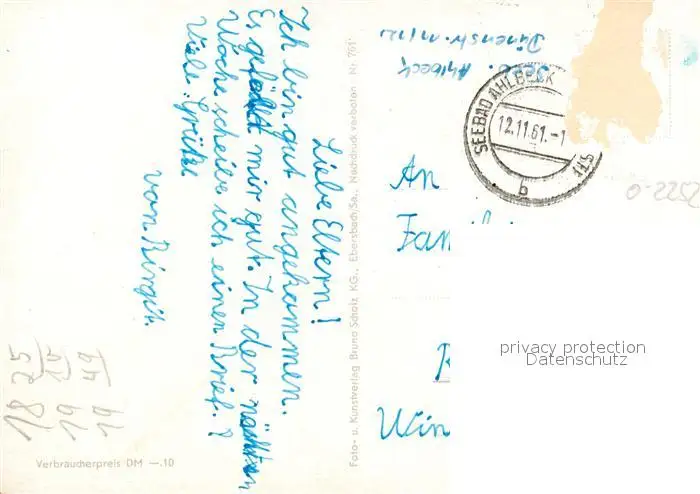 Liebe Eltern!
Ich bin gut angekommen.
Es gefällt mir gut. In der nächsten
Woche scheibe ich einen Brief.
Viele Grüße
von Birgit.
Verbraucherpreis DM —.10
Foto- u. Kunstverlag Bruno Scholz KG., Ebersbach/Sa., Nachdruck verboten Nr. 761
Ahlbeck
Dünenstr.
SEEBAD AHLBECK
12.11.61.-1
b
An
Fam
Win
0-2252
privacy protection
Datenschutz
18 25
19
19 49